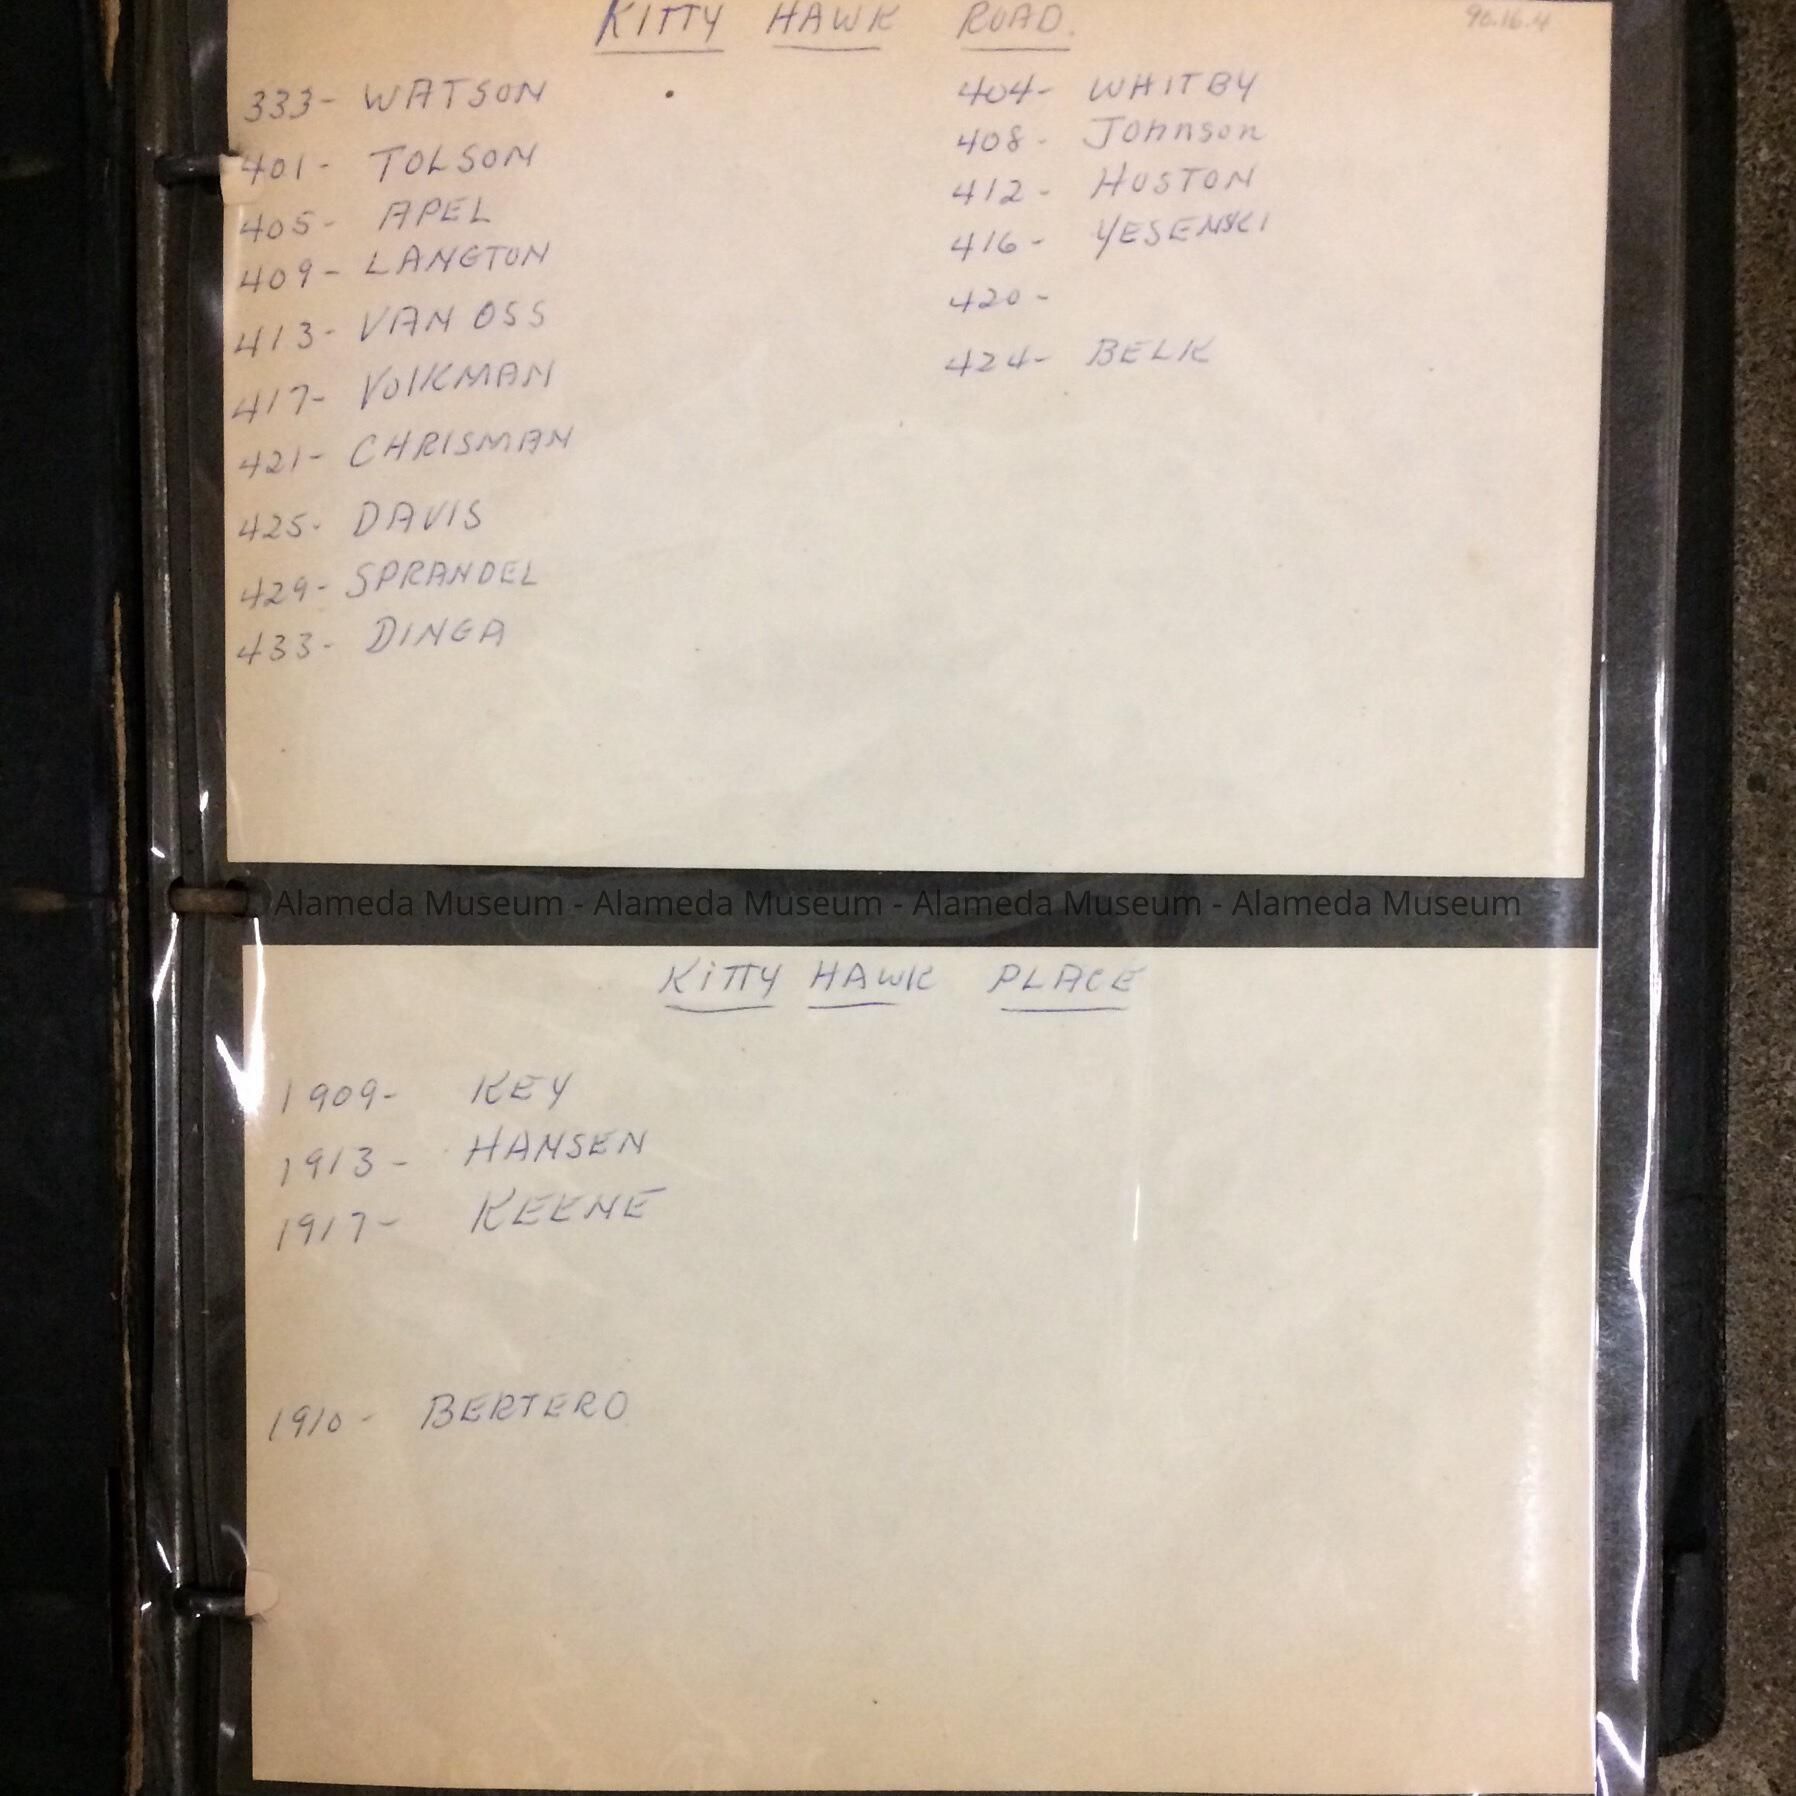 KITTY HAWK ROAD.
90.16.4
333- WATSON
401- TOLSON
405- APEL
409- LANGTON
413- VAN OSS
417- VOlKMAN
421- CHRISMAN
425- DAVIS
429- SPRANDEL
433- DINGA
404- WHITBY
408- Johnson
412- HUSTON
416- YESENSKI
420-
424- BELK
Alameda Museum - Alameda Museum - Alameda Museum - Alameda Museum
KiTTY HAWK PLACE
1909- KEY
1913- HANSEN
1917- KEENE
1910- BERTERO